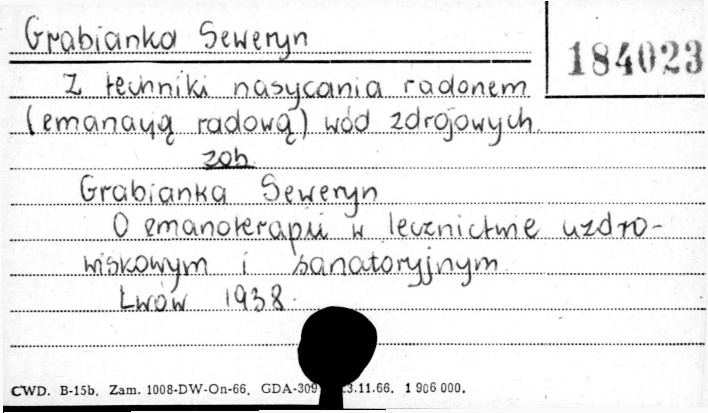 Grabianka Seweryn
184023
Z techniki nasycania radonem
(emanacją radową) wód zdrojowych.
zob.
Grabianka Seweryn
O emanoterapii w lecznictwie uzdro-
wiskowym i sanatoryjnym.
Lwów 1938.
CWD. B-15b, Zam. 1008-DW-On-66, GDA-309 3.11.66. 1 906 000.